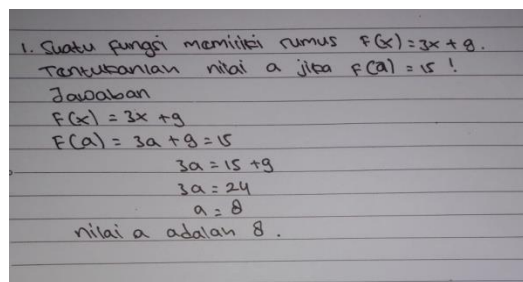 1. Suatu fungsi memiliki rumus F(x) = 3x + 9.
Tentukanlah nilai a jika F(a) = 15 !
Jawaban
F(x) = 3x + 9
F(a) = 3a + 9 = 15
3a = 15 + 9
3a = 24
a = 8
nilai a adalah 8.